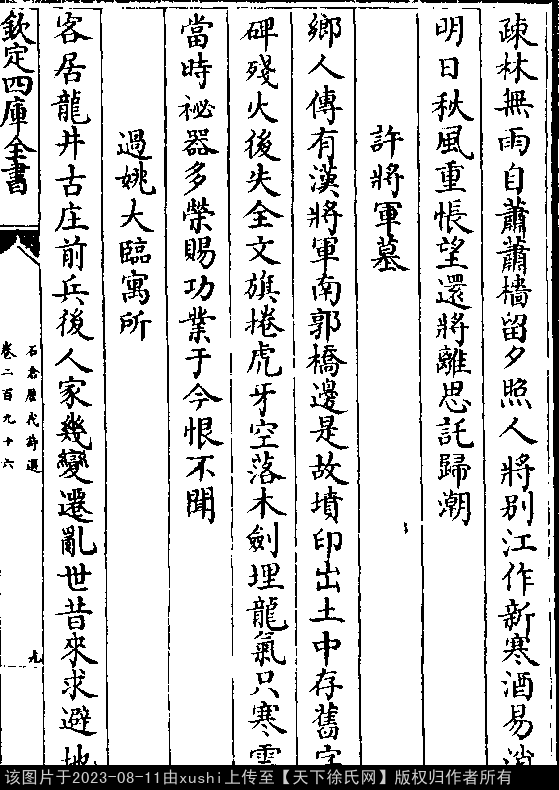 疎林無雨自蕭蕭檣留夕照人將别江作新寒酒易消
明日秋風重悵望還將離思託歸潮
許將軍墓
鄉人傳有漢將軍南郭橋邊是故墳印出土中存舊字
碑殘火後失全文旗捲虎牙空落木劍埋龍氣只寒雲
當時祕器多榮賜功業于今恨不聞
過姚大臨寓所
客居龍井古庄前兵後人家幾變遷亂世昔來求避地
欽定四庫全書
石倉歷代詩選
卷二百九十六
九
该图片于2023-08-11由xushi上传至【天下徐氏网】版权归作者所有